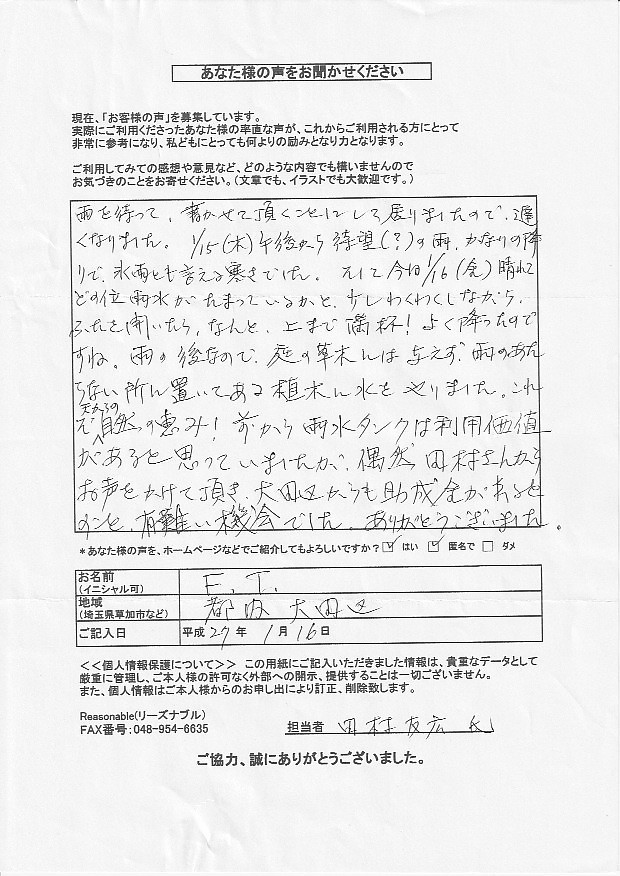 あなた様の声をお聞かせください
現在、「お客様の声」を募集しています。
実際にご利用くださったあなた様の率直な声が、これからご利用される方にとって
非常に参考になり、私どもにとっても何よりの励みとなり力となります。
ご利用してみての感想や意見など、どのような内容でも構いませんので
お気づきのことをお寄せください。(文章でも、イラストでも大歓迎です。)
雨を待って、書かせて頂くことにして居りましたので、遅
くなりました。1/15(木)午後から待望(?)の雨、かなりの降
りで、氷雨とも言える寒さでした。そして今日1/16(金)晴れて
どの位雨水がたまっているかと、少しわくわくしながら、
ふたを開いたら、なんと、上まで満杯!よく降ったので
すね。雨の後なので、庭の草木には与えず、雨のあた
らない所に置いてある植木に水をやりました。これ
ぞ天からの自然の恵み!前から雨水タンクは利用価値
があると思っていましたが、偶然田村さんから
お声をかけて頂き、大田区からも助成金があると
のこと、有難い機会でした。ありがとうございました。
*あなた様の声を、ホームページなどでご紹介してもよろしいですか?☑はい ☑匿名で □ダメ
お名前
(イニシャル可) F. I.
地域
(埼玉県草加市など) 都内 大田区
ご記入日 平成27年1月16日
<<個人情報保護について>> この用紙にご記入いただきました情報は、貴重なデータとして
厳重に管理し、ご本人様の許可なく外部への開示、提供することは一切ございません。
また、個人情報はご本人様からのお申し出により訂正、削除致します。
Reasonable(リーズナブル)
FAX番号:048-954-6635
担当者 田村友広 氏
ご協力、誠にありがとうございました。